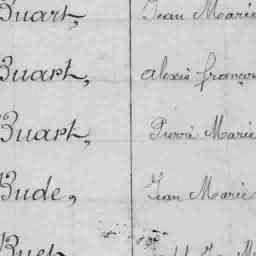 Buart, Jean Marie
Buart, alexis françois
Buart, Pierre Marie
Bude, Jean Marie